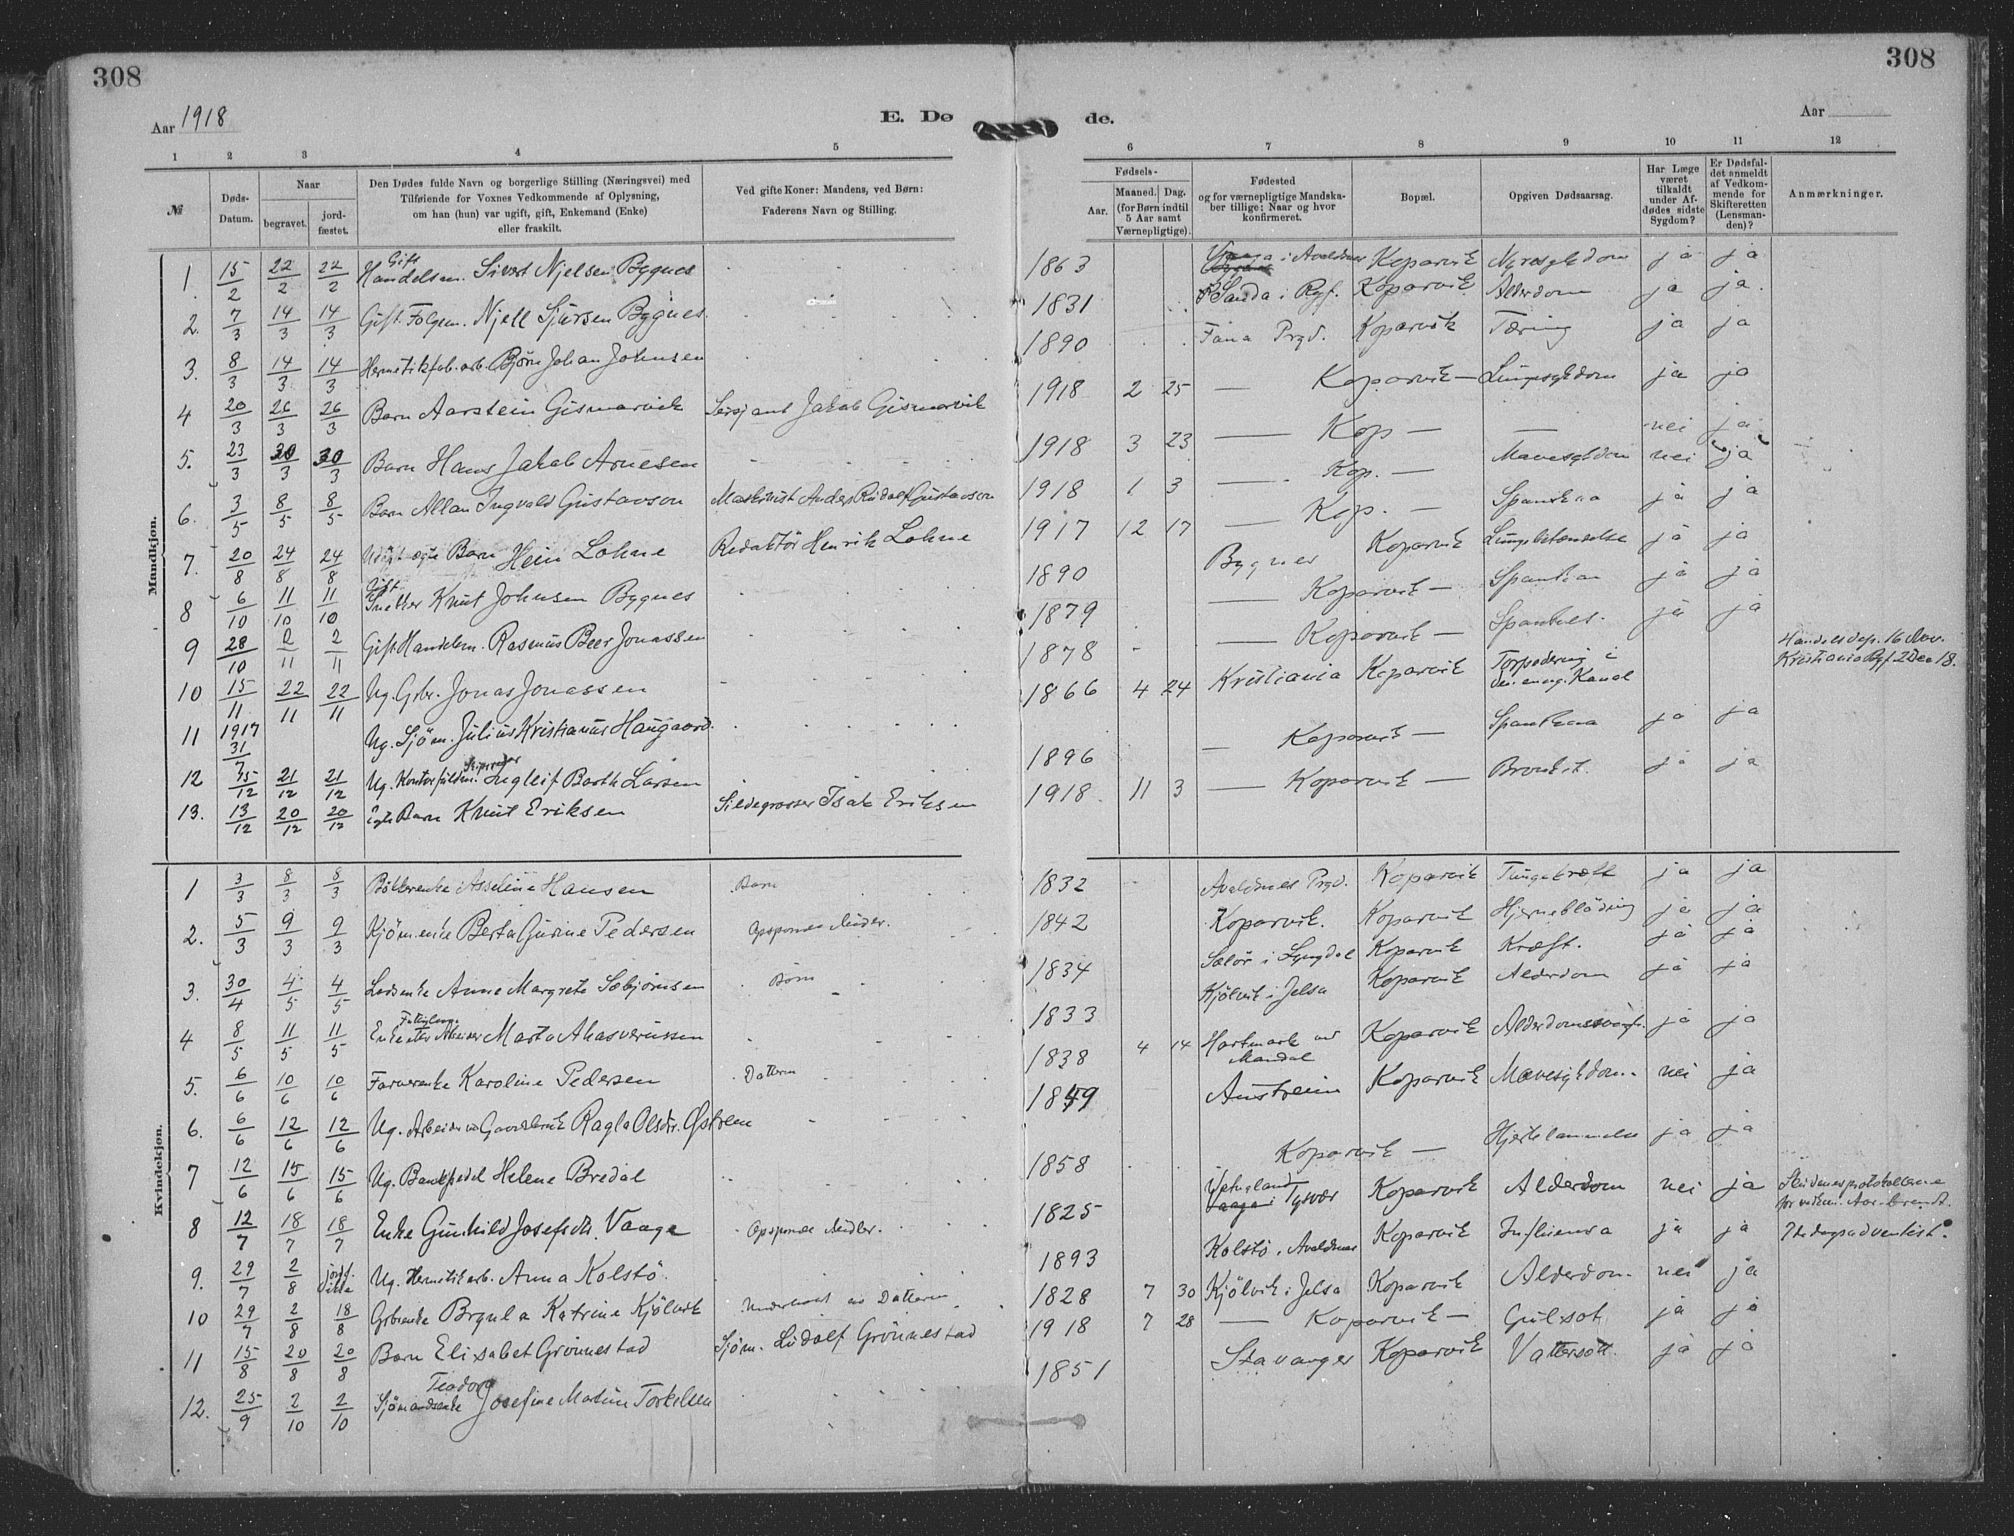 308
308
Aar 1918
E. Dø
de.
Aar
1 2 3 4 5 6 7 8 9 10 11 12
№
Døds-Datum.
Naar
begravet.
jord-fæstet.
Den Dødes fulde Navn og borgerlige Stilling (Næringsvei) med
Tilføiende for Voxnes Vedkommende af Oplysning,
om han (hun) var ugift, gift, Enkemand (Enke)
eller fraskilt.
Ved gifte Koner: Mandens, ved Børn:
Faderens Navn og Stilling.
Fødsels-
Aar.
Maaned. Dag.
(for Børn indtil
5 Aar samt
Værnepligtige).
Fødested
og for værnepligtige Mandska-
ber tillige: Naar og hvor
konfirmeret.
Bopæl.
Opgiven Dødsaarsag.
Har Læge
været
tilkaldt
under Af-
dødes sidste
Sygdom?
Er Dødsfal-
det anmeldt
af Vedkom-
mende for
Skifteretten
(Lensman-
den)?
Anmærkninger.
Mandkjøn.
1. 15/2 22/2 22/2 Gift Handelsm. Sivert Njelsen Bygnes 1863 i Avaldsnes Koparvik Nyresykdom ja ja
2. 7/3 14/3 14/3 Gift. Folgem. Njell Sjursen Bygnes 1831 Sanda i Ryf. Koparvik Alderdom ja ja.
3. 8/3 14/3 14/3 Hermetikfab. arb. Bjørn Johan Johnsen 1890 Fana Prgd. Koparvik Tæring ja ja
4 20/3 26/3 26/3 Barn Aarstein Gismarvik Sersjant Jakob Gismarvik 1918 2 25 — Koparvik — Lungesykdom ja ja
5. 23/3 30/3 30/3 Barn Hans Jakob Arnesen 1918 3 23 — Kop — — nei ja
6. 3/5 8/5 8/5 Barn Allan Ingvald Gustavson Maskinist Anders Rudolf Gustavson 1918 1 3 — Kop. — Mavesykdom nei ja
7. 20/8 24/8 24/8 Barn Hein Lohne Redaktør Henrik Lohne 1917 12 17 — Kop. — Spanska ja ja
8 6/10 11/10 11/10 Gift Snekker Knut Johnsen Bygnes 1890 Bygnes Koparvik Lungebetændelse ja ja
9 28/10 2/11 2/11 Gift Handelsm. Rasmus Beer Jonassen 1879 — Koparvik — Spanskea ja ja
10 15/11 22/11 22/11 Ug. Grbr. Jonas Jonassen 1878 — Koparvik — ja ja
11 1917 31/7 Ug. Sjøm. Julius Kristianus Haugaard. 1866 4 24 Kristiania Koparvik Torpedering i den eng. Kanal Handelsdep. 16 Nov. Kristiania Byf. 2 Dec 18.
12 15/12 21/12 21/12 Ug. Ingleif Barth Larsen 1896 — Koparvik — Spanskea ja ja
13. 13/12 20/12 20/12 ægte Barn Knut Eriksen Sildegrosser Isak Eriksen 1918 11 3 — Koparvik — Bronkit. ja ja
Kvindekjøn.
1 3/3 8/3 8/3 Bøkkerenke Asseline Hansen Barn 1832 Avaldsnes Prgd. Koparvik Tungekræft ja ja
2. 5/3 9/3 9/3 Sjømenke Berta Gurine Pedersen Opsparede Midler. 1842 Koparvik. Koparvik Hjerneblødning ja ja
3. 30/4 4/5 4/5 Losenke Anne Margrete Sæbjørnsen Børn 1834 Sælør i Lyngdal Koparvik Kræft. ja ja
4 8/5 11/5 11/5 Enke Marta Ahasverussen 1833 Kjølvik i Jelsa Koparvik Alderdom ja ja
5. 6/6 10/6 10/6 Farverenke Karoline Pedersen Datteren 1838 4 14 Hartmark ved Mandal Koparvik ja ja
6. 6/6 12/6 12/6 Ug. Ragla Olsdtr. Østrem 1849 Austreim Koparvik Mavesykdom. nei ja
7 12/6 15/6 15/6 Ug. Helene Bredal 1858 Koparvik — Hjertelammelse ja ja
8 12/7 18/7 18/7 Enke Gunhild Josefsdtr. Vaage Opsparede Midler. 1825 Tysvær Koparvik Alderdom nei ja
9. 29/7 2/8 Ug. Hermetikarb. Anna Kolstø. 1893 Kolstø i Avaldsnes Koparvik Influensa ja ja 7de dagsadventist.
10 29/7 2/8 18/8 Grbrenke Brynla Katrine Kjølvik Underholdt av Datteren 1828 7 30 Kjølvik i Jelsa Koparvik Alderdom. nei ja
11 15/8 20/8 20/8 Barn Elisabet Grønnestad Sjøm. Ludolf Grønnestad 1918 7 28 — Koparvik — Gulsot ja ja
12. 25/9 2/10 2/10 Sjømandsenke Teodora Josefine Martine Torkelsen 1851 Stavanger Koparvik Vattersott. ja ja